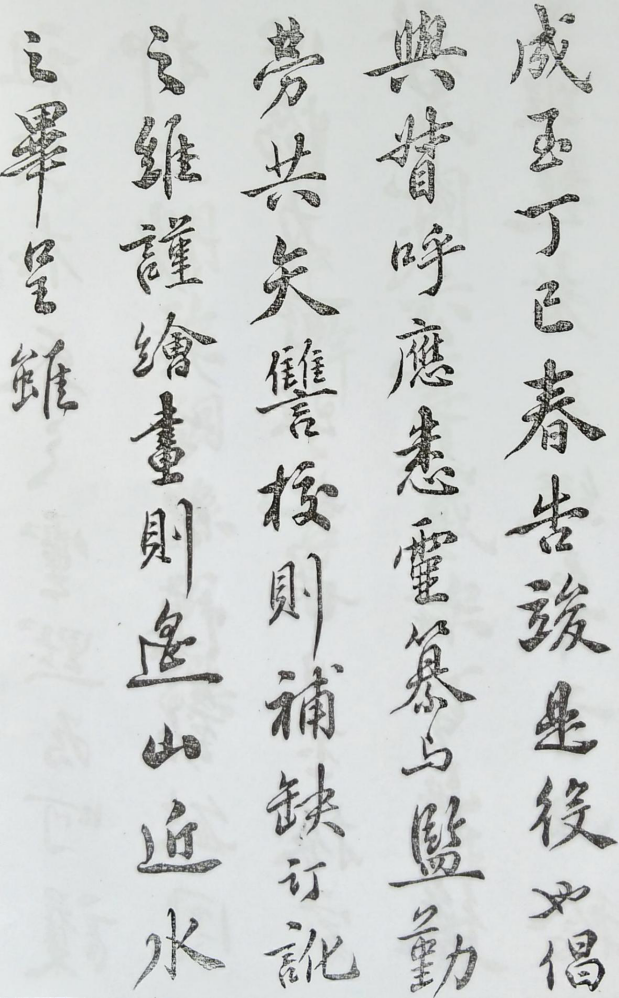 成玉丁巳春告竣是役也倡
與督呼應悉靈纂与監勤
勞共矢讐校則補缺訂訛
之維謹繪畫則遙山近水
之畢呈雖